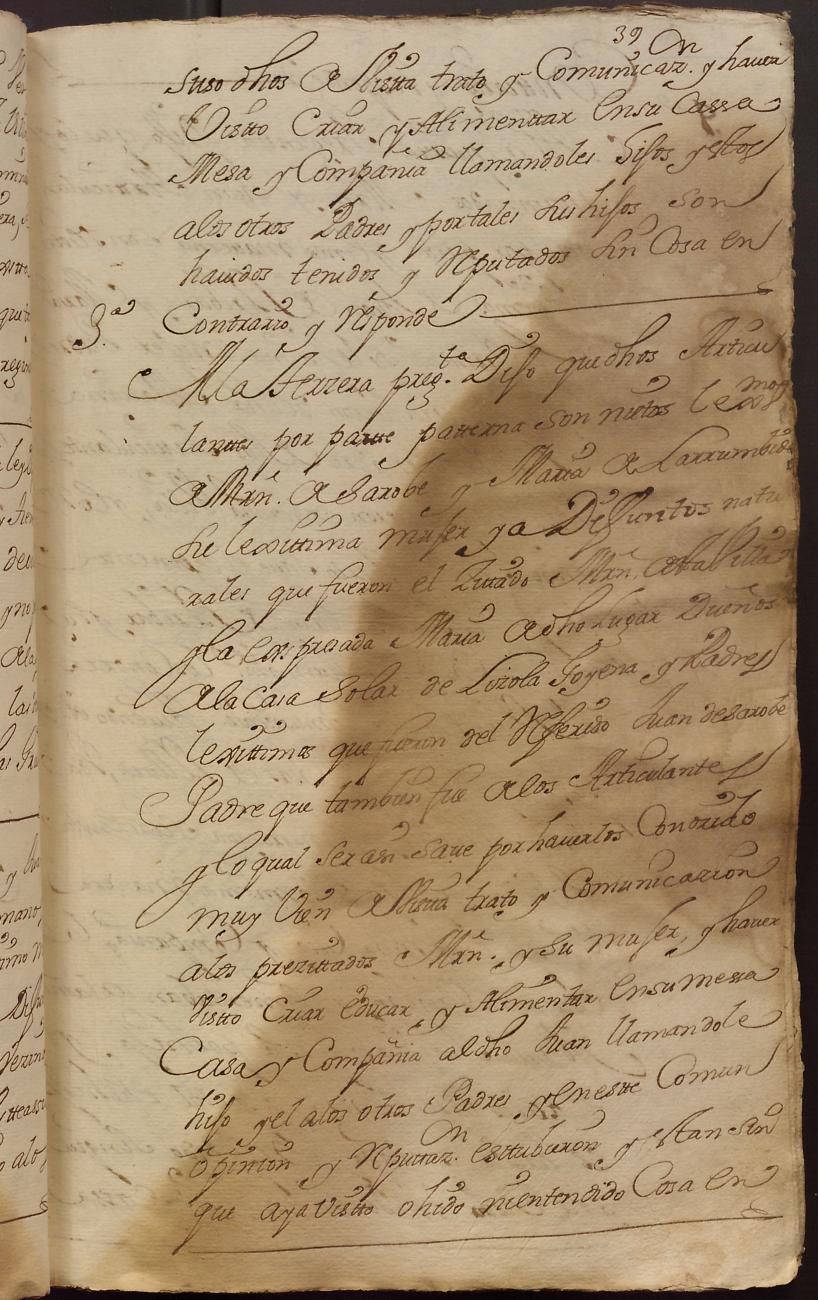 39
suso dhos de Vista trato y Comunicaz.on y haver
Visto Criar y Alimenttar En su Cassa
Mesa y Compañia llamandoles hijos y estos
alos otros Padres y por tales sus hijos son
havidos tenidos y Reputados sin Cosa en
Contrario y Responde
3.a
A la Terzera preg.ta Dijo que dhos Articu
lantes por parte paterna son nietos lexmos
de Mrn. de Sarobe y Maria de Larrumbide
su lexittima mujer ya Difuntos natu
rales que fueron el Zitado Mrn. de tta Villa
y la Expresada Maria de dho lugar Dueños
de la Casa Solar de Lizola Goyena y Padres
lexittimos que fueron del Referido Juan de Sarobe
Padre que tambien fue de los Articulantes
y lo qual ser asi Save por haverlos Conozido
muy Vien de Vista trato y Comunicazion
alos prezittados Mrn. y su mujer, y haver
Visto Criar Educar y Alimentar En su messa
Casa y Compañia al dho Juan llamandole
hijo y el alos otros Padres y En estte Comun
opinion y Reputtaz.on esttubieron y estan sin
que aya Visto ohido ni entendido Cosa en